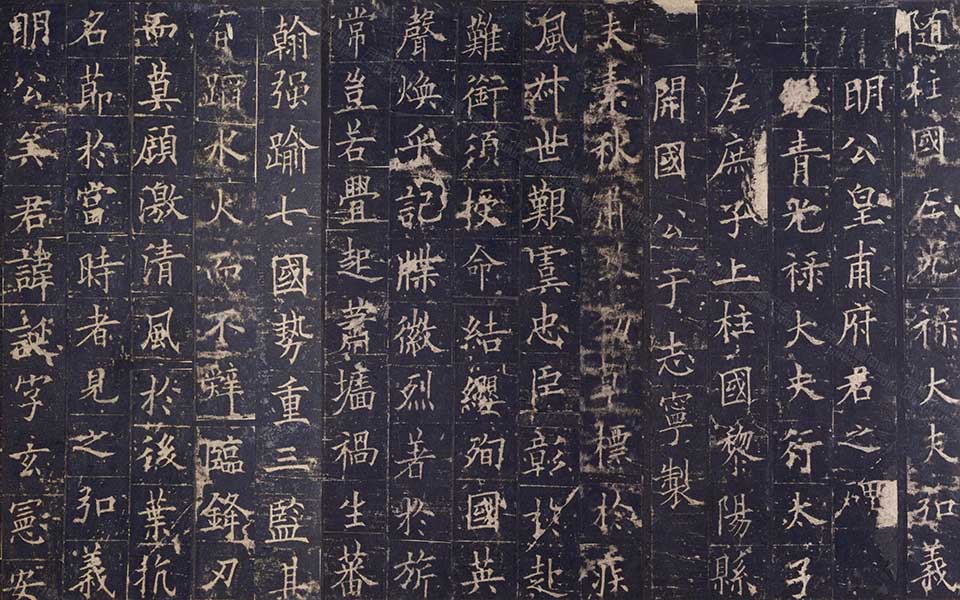 隨柱國左光祿大夫弘義
明公皇甫府君之碑
青光祿大夫行太子
左庶子上柱國黎陽縣
開國公于志寧製
夫素秋肅煞勁草標於疾
風叔世艱虞忠臣彰於赴
難銜須授命結纓殉國英
聲煥乎記牒徽烈著於旂
常豈若舋起蕭墻禍生蕃
翰强踰七國勢重三監其
有蹈水火而不辭臨鋒刃
而莫顧激清風於後葉抗
名節於當時者見之弘義
明公矣君諱誕字玄憲安